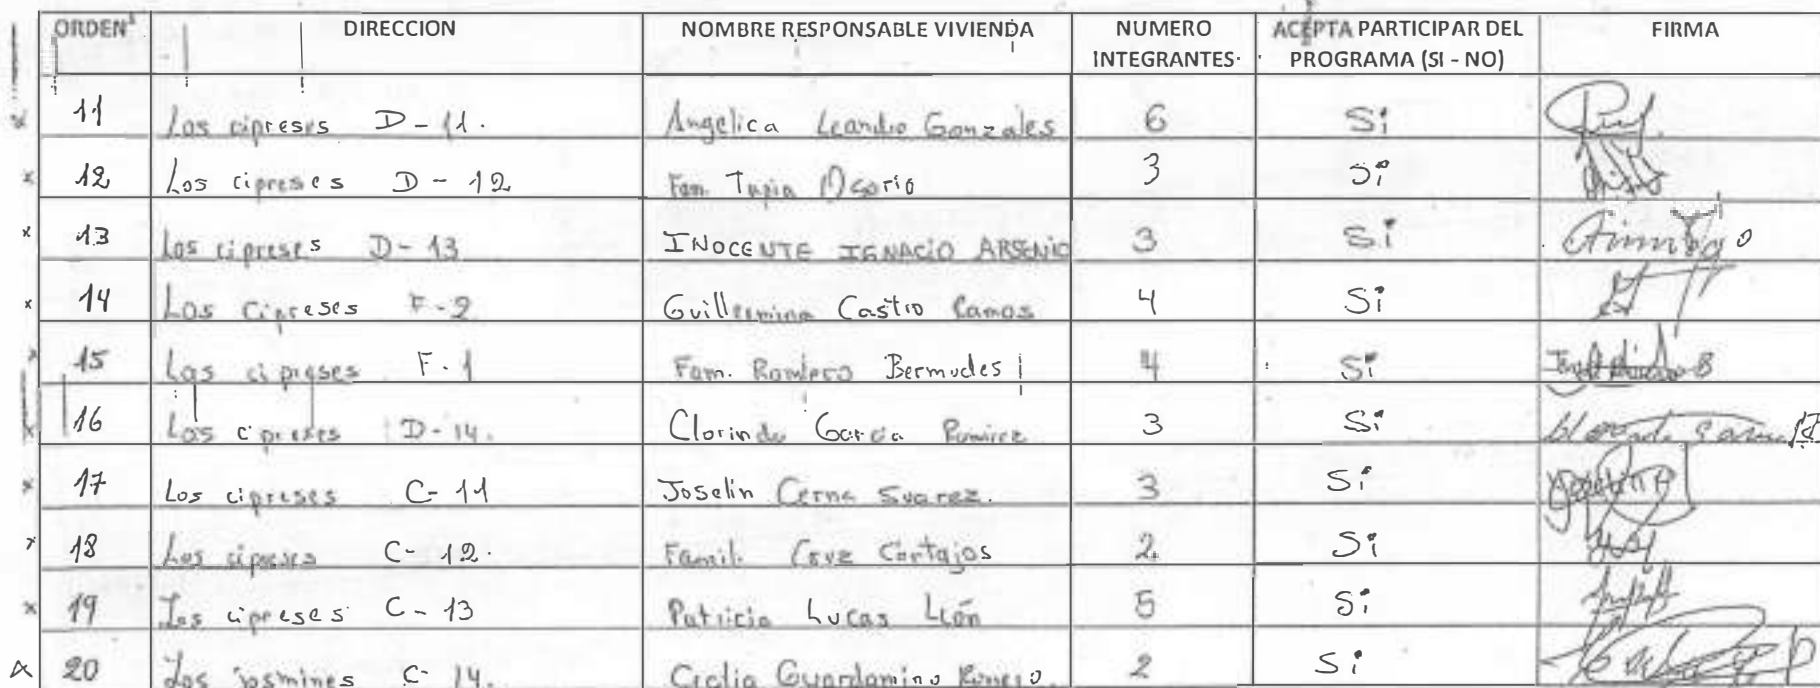 ORDEN DIRECCION NOMBRE RESPONSABLE VIVIENDA NUMERO INTEGRANTES ACEPTA PARTICIPAR DEL PROGRAMA (SI - NO) FIRMA
11 Los cipreses D-11. Angelica Leandro Gonzales 6 Si
12 Los cipreses D-12 Fam. Tapia Osorio 3 Si
13 Los cipreses D-13 INOCENTE IGNACIO ARSENIO 3 Si
14 Los Cipreses F-2 Guillermina Castro Ramos 4 Si
15 Los cipreses F.1 Fam. Romero Bermudes 4 Si
16 Los cipreses D-14. Clorinda Garcia Ramirez 3 Si
17 Los cipreses C-11 Joselin Cerna Suarez. 3 Si
18 Los cipreses C-12. Famil. Cruz 2 Si
19 Los cipreses C-13 Patricia Lucas León 5 Si
20 Los josmines C-14. Guardamino 2 Si